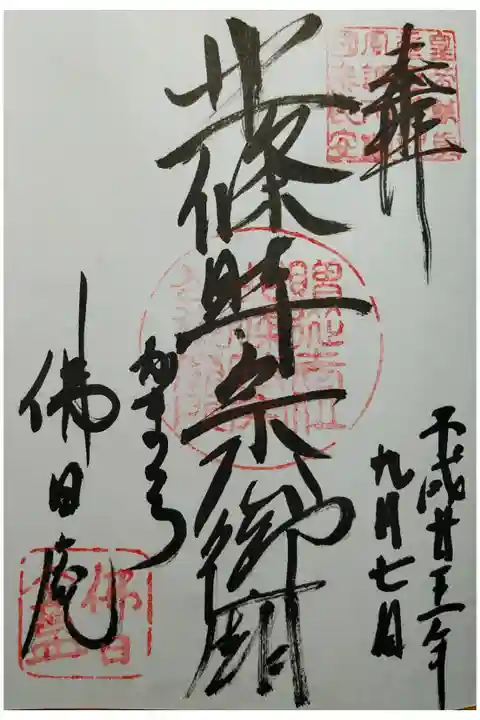 奉拝
北條時宗公御廟
平成廿三年
九月七日
かまくら
佛日庵
佛日庵